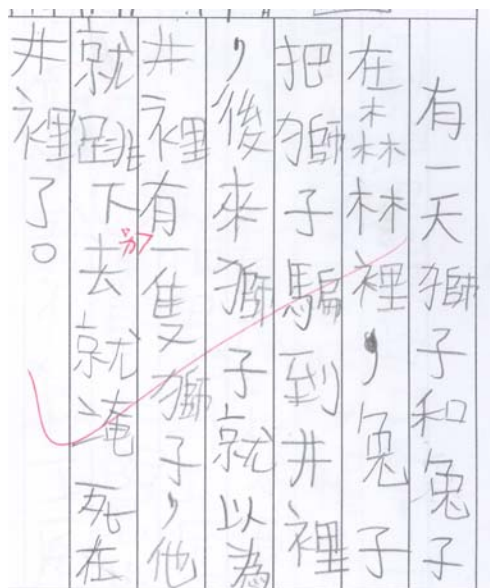 有一天獅子和兔子
在森林裡，兔子
把獅子騙到井裡
，後來獅子就以為
井裡有一隻獅子，他
就跳下去就淹死在
井裡了。